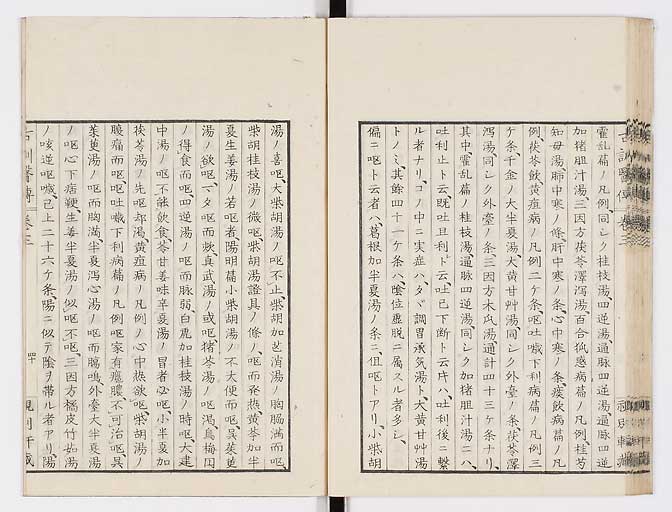 霍乱篇ノ凡例、同シク桂枝湯、四逆湯、通脉四逆
加猪胆汁湯、三因方茯苓澤瀉湯、百合狐惑病篇ノ凡例、桂芍
知母湯、肺中寒ノ條、肝中寒ノ条、心中寒ノ条、痰飲病篇ノ凡
例、茯苓飲、黄疸病ノ凡例二ケ条、呕吐噦下利病篇ノ凡例三
ケ条、千金ノ大半夏湯、大黄甘艸湯、同シク外臺ノ条、茯苓澤
瀉湯、同シク外臺ノ条、三因方木瓜湯、通計四十三ケ条ナリ、
其中霍乱篇ノ桂枝湯、通脉四逆湯、同シク加猪胆汁湯二ハ、
吐利止ト云、既吐且利ト云、吐已下断ト云ハ、吐利後ニ繋
ル者ナリ、コノ中ニ実症ハ、タヾ調胃承気湯ト、大黄甘艸湯
トノミ、其餘四十一ケ条ハ、陰位虚脱ニ属スル者多シ、
偏ニ呕ト云者ハ、葛根加半夏湯ノ条ニ、但呕トアリ、小柴胡
湯ノ喜呕、大柴胡湯ノ呕不止、柴胡加芒消湯ノ胸脇満而呕、
柴胡桂枝湯ノ微呕、柴胡湯證具ノ條ノ、呕而発熱、黄芩加半
夏生姜湯ノ若呕者、陽明篇小柴胡湯ノ不大便而呕、呉茱萸
湯ノ欲呕、一タ呕而欬、真武湯ノ或呕、猪苓湯ノ呕渇、烏梅円
ノ得食而呕、四逆湯ノ呕而脉弱、白虎加桂枝湯ノ時呕、大建
中湯ノ呕不能飲食、苓甘姜味辛夏湯ノ冒者必呕、小半夏加
茯苓湯ノ先呕却渇、黄疸病ノ凡例ノ心中熱欲呕、柴胡湯ノ
腹痛而呕、呕吐噦下利病篇ノ凡例呕家有癰膿、不可治呕、呉
茱萸湯ノ呕而胸満、半夏瀉心湯ノ呕而腸鳴、外臺大半夏湯
ノ呕心下痞鞕、生姜半夏湯ノ似呕不呕、三因方橘皮竹茹湯
ノ咳逆呕噦、已上二十六ケ条、陽ニ似テ陰ヲ帯ル者アリ、陽